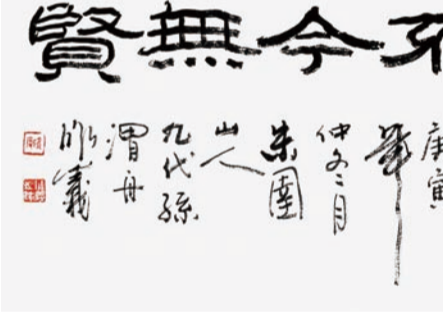 今無賢
庚寅
年
仲冬月
朱圉
山人
九代孫
渭舟